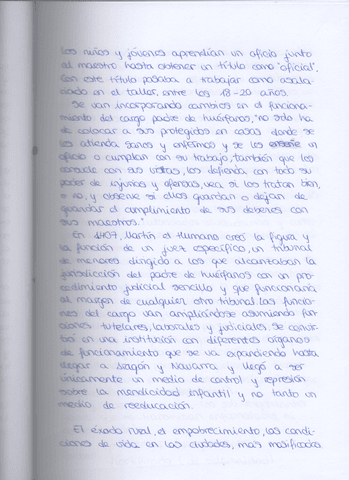 los niños y jóvenes aprendían un oficio junto
al maestro hasta obtener un título como "oficial".
Con este título pasaba a trabajar como asala-
riado en el taller, entre los 18-20 años.
Se van incorporando cambios en el funciona-
miento del cargo padre de huérfanos, "no solo ha
de colocar a sus protegidos en casas donde se
les atienda sanos y enfermos y se les enseñe un
oficio o cumplan con su trabajo, también que los
consuele con sus visitas, los defienda con todo su
poder de injurias y ofensas, vea si los tratan bien,
o no, y observe si ellos guardan o dejan de
guardar el cumplimiento de sus deberes con
sus maestros."
En 1407, Martín el Humano creó la figura y
la función de un juez específico, un tribunal
de menores dirigido a los que alcanzaban la
jurisdicción del padre de huérfanos con un pro-
cedimiento judicial sencillo y que funcionaría
al margen de cualquier otro tribunal. Las funcio-
nes del cargo van ampliándose asumiendo fun-
ciones tutelares, laborales y judiciales. Se convir-
tió en una institución con diferentes órganos
de funcionamiento que se va expandiendo hasta
llegar a Aragón y Navarra y llegó a ser
únicamente un medio de control y represión
sobre la mendicidad infantil y no tanto un
medio de reeducación.
El éxodo rural, el empobrecimiento, las condi-
ciones de vida en las ciudades, mas masificadas